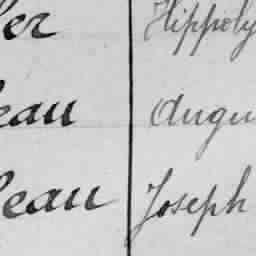 ler Hippoly
eau Augu
leau Joseph